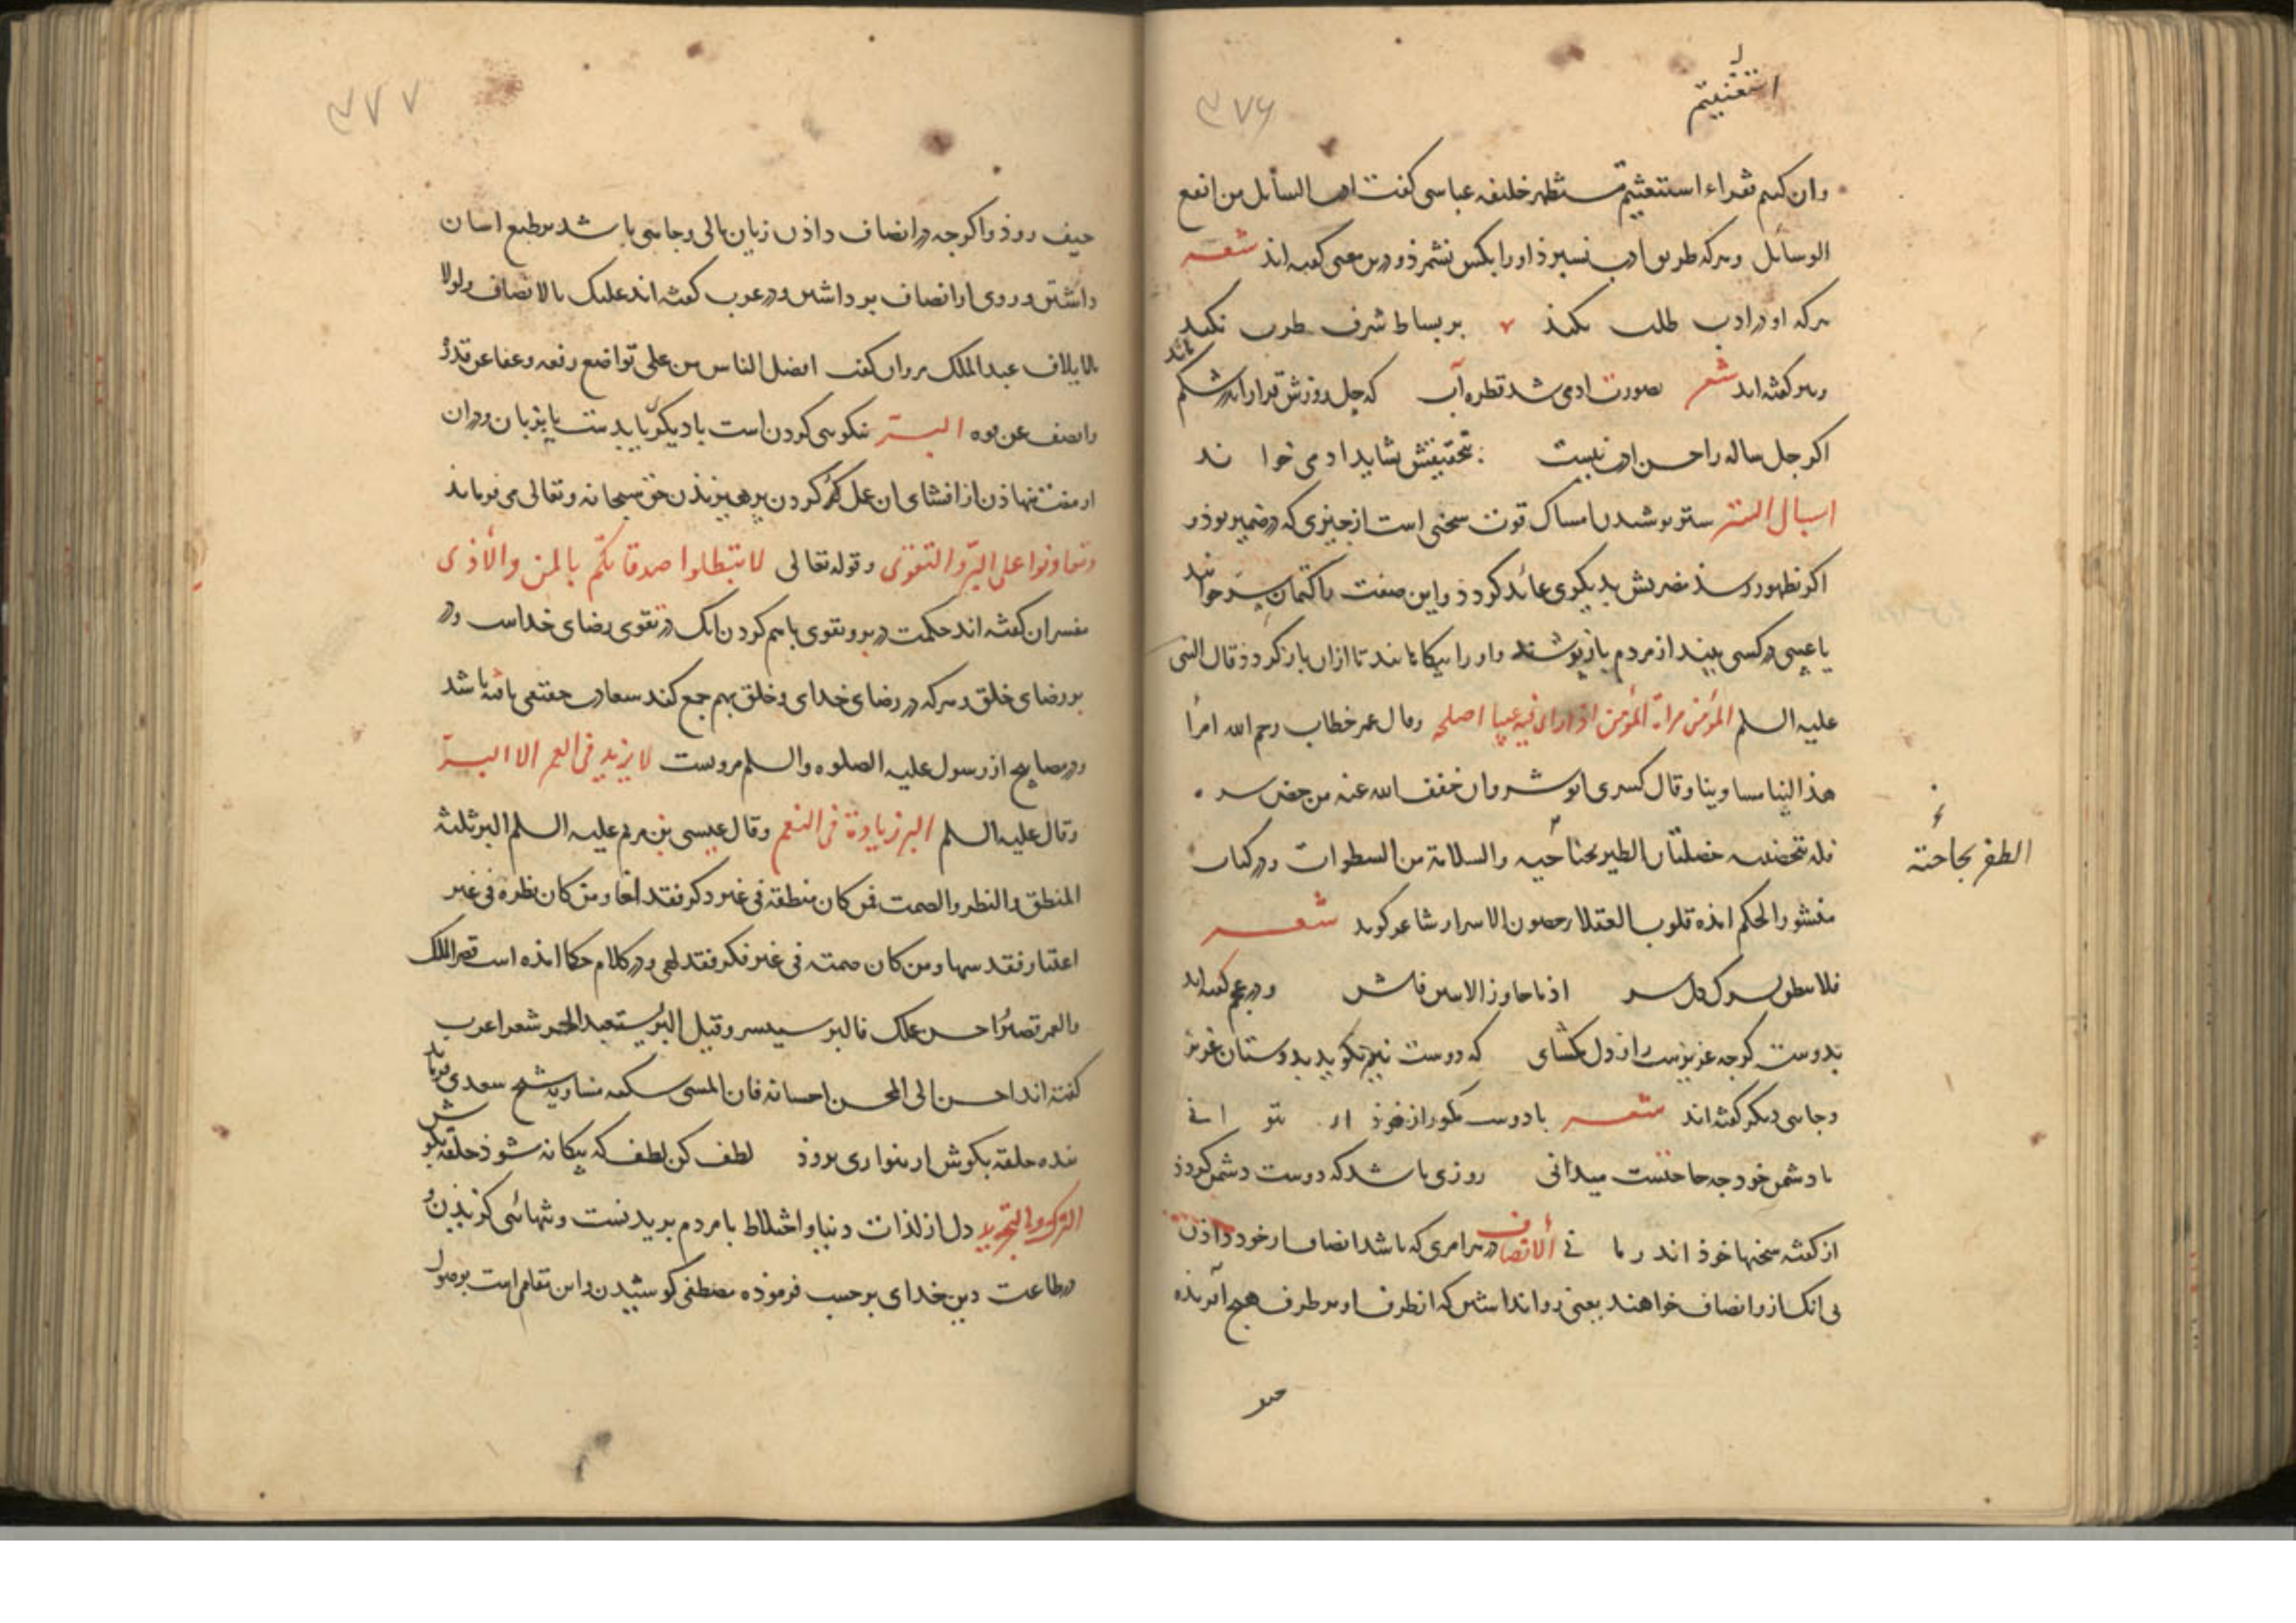 استغنیتم
۳۷۶
وان کنتم فقراء استغنیتم مستظهر خلیفه عباسی کفت ادب السایل من انفع
الوسائل و هرکه طریق ادب نسپرذ اورا بکس نشمرذ و درین معنی کفته اند شعر
هرکه او در ادب طلب نکند بر بساط شرف طرب نکند
و هم کفته اند شعر بصورت ادمی شد قطره آب که چل روزش قرار اندر شکم ماند
اکر چل ساله را حسن ادب نیست تحقیقش نشاید ادمی خواند
اسبال الستر ستر پوشیدن امساک قوت سخنی است از چیزی که در ضمیر بوذ و
اکر بظهور رسذ مضرتش بدیکری عائد کردذ و این صفت را کتمان سر خوانند
یا عیبی در کسی بیند از مردم باز پوشد و اورا بیکاهاند تا ازان باز کردذ قال النبی
علیه السلم المؤمن مرآة المؤمن اذا رای فیه عیبا اصلحه وقال عمر خطاب رحم الله امرأ
هذا الینا مساوینا وقال کسری انوشروان خفف الله عنه من حصن سره
فله بتحصینه خصلتان الظفر بحاجته والسلامة من السطوات و در کتاب
الظفر بحاجته
منشور الحکم امذه قلوب العقلا حصون الاسرار شاعر کوید شعر
فلا ینطق بسرک کل سر اذا ما جاوز الاثنین فاش و در عجم کفته اند
بدوست کرچه عزیزست راز دل مکشای که دوست نیز بکوید بدوستان عزیز
و جایی دیکر کفته اند شعر با دوست مکو راز خوذ ار بتوانی
با دشمن خود چه حاجتست میدانی روزی باشد که دوست دشمن کردذ
از کفته سخنها خوذ اندر مانی الانصاف در هر امری که باشد انصاف از خود دادن
بی انک ازو انصاف خواهند یعنی روا نداشتن که از طرف او بر طرف هیچ آفریذه
حیف
۳۷۷
حیف روذ و اکرچه در انصاف داذن زیان مالی و جاهی باشد بر طبع اسان
داشتن و روی از انصاف بر نداشتن و در عرب کفته اند علیک بالانصاف ولولا
بالایلاف عبد الملک مروان کفت افضل الناس من علی تواضع رفعه وعفا عن قدرة
وانصف عن قوه البر نیکویی کردن است با دیکری یا بدست یا بزبان و دران
از منت نهاذن از افشای ان عمل کردن پرهیزیذن حق سبحانه و تعالی می فرماید
وتعاونوا علی البر والتقوی وقوله تعالی لا تبطلوا صدقاتکم بالمن والاذی
مفسران کفته اند حکمت در بر و تقوی باهم کردن انک در تقوی رضای خداست و در
بر رضای خلق و هرکه در رضای خدای و خلق بهم جمع کند سعادت حقیقی یافته باشد
و در مصابیح از رسول علیه الصلوه والسلم مرویست لا یزید فی العمر الا البر
وقال علیه السلم البر زیادة فی النعم وقال عیسی بن مریم علیه السلم البر ثلثة
المنطق والنظر والصمت فمن کان منطقه فی غیر ذکر فقد لغا ومن کان نظره فی غیر
اعتبار فقد سها ومن کان صمته فی غیر فکر فقد لهی و در کلام حکما امذه است قصر الملک
والعمر قصیر احسن عملک فالبر سیسر وقیل البر یستعبد الحر شعراء عرب
کفته اند احسن الی المحسن احسانه فان المسی سیکفه مساویه شیخ سعدی فرماید
بنده حلقه بکوش ار ننوازی بروذ لطف کن لطف که بیکانه شوذ حلقه بکوش
الترک والتجرید دل از لذات دنیا و اختلاط با مردم بریدنست و تنهائی کزیذن و
در طاعت دین خدای بر حسب فرموذه مصطفی کوشیدن و این مقام است بر اصول